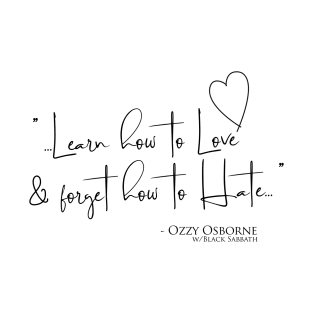 "...Learn how to Love
& forget how to Hate..."
- Ozzy Osborne
w/Black Sabbath